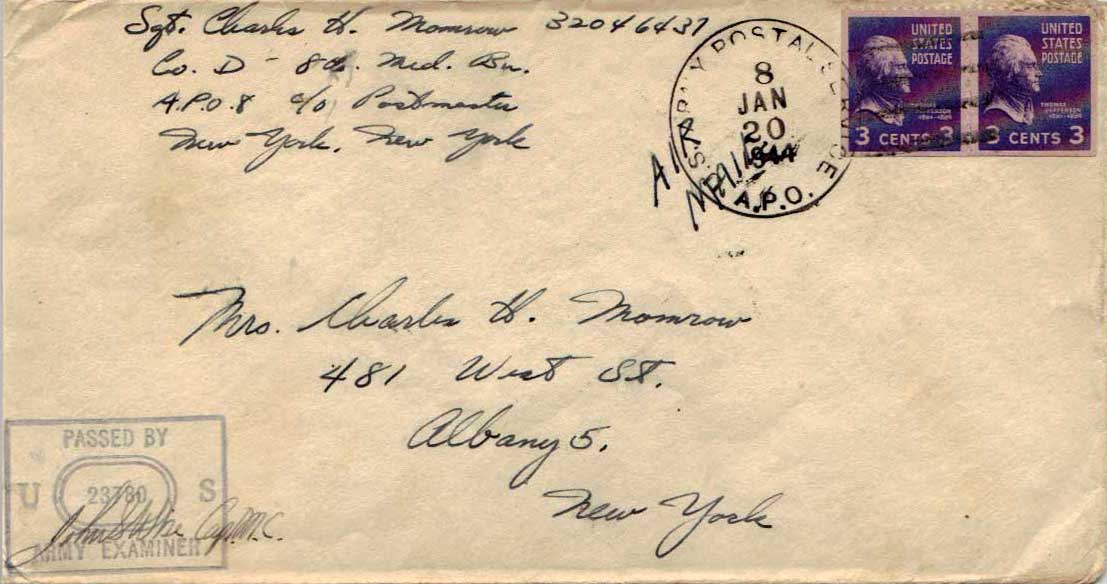 Sgt. Charles H. Momrow 32046437
Co. D - 8th Med. Bn.
A.P.O. 8 c/o Postmaster
New York, New York
U.S. ARMY POSTAL SERVICE
8
JAN
20
1944
A.P.O.
AIR
MAIL
UNITED
STATES
POSTAGE
THOMAS
JEFFERSON
1801-1809
3 CENTS 3
UNITED
STATES
POSTAGE
THOMAS
JEFFERSON
1801-1809
3 CENTS 3
Mrs. Charles H. Momrow
481 West St.
Albany 5.
New York
PASSED BY
U 23780 S
ARMY EXAMINER
Cap. M.C.